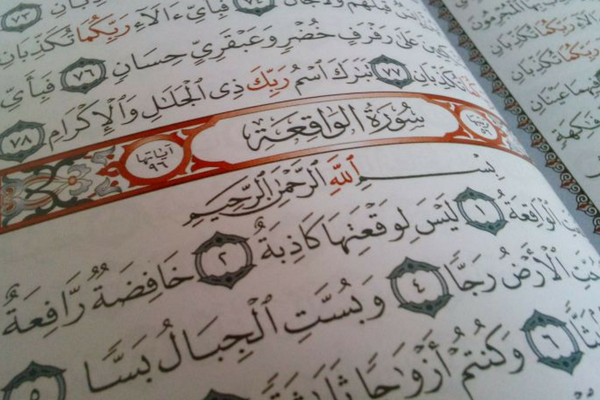 قَبْلَهُمْ وَلَا جَآنٌّ ٧٤ فَبِأَيِّ ءَالَآءِ رَبِّكُمَا تُكَذِّبَانِ
عَلَىٰ رَفْرَفٍ خُضْرٍ وَعَبْقَرِيٍّ حِسَانٍ ٧٦ فَبِأَيِّ
تُكَذِّبَانِ ٧٧ تَبَٰرَكَ ٱسْمُ رَبِّكَ ذِى ٱلْجَلَٰلِ وَٱلْإِكْرَامِ ٧٨
سُورَةُ الوَاقِعَة آياتها ٩٦
بِسْمِ ٱللَّهِ ٱلرَّحْمَٰنِ ٱلرَّحِيمِ
ٱلْوَاقِعَةُ ١ لَيْسَ لِوَقْعَتِهَا كَاذِبَةٌ ٢ خَافِضَةٌ رَّافِعَةٌ
ٱلْأَرْضُ رَجًّا ٤ وَبُسَّتِ ٱلْجِبَالُ بَسًّا ٥
٦ وَكُنتُمْ أَزْوَٰجًا ثَلَٰثَةً